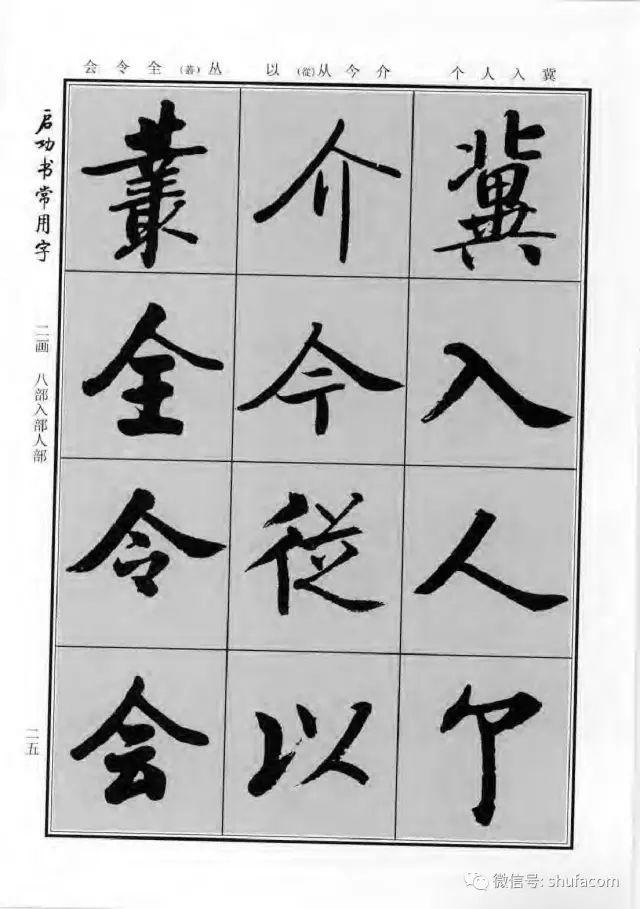 冀入人个 介今从(從)以 丛(叢)全令会
冀入人个
介今從以
叢全令会
启功书常用字
二画 八部入部人部
二五
微信号: shufacom